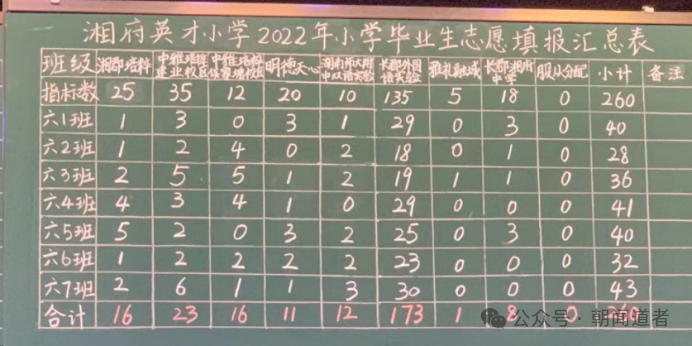 湘府英才小学2022年小学毕业生志愿填报汇总表
班级 湘郡培粹 中雅培粹建业校区 中雅培粹 明德天心 湖南师大附中双语实验 长郡外国语实验 雅礼融城 长郡湘府中学 服从分配 小计 备注
指标数 25 35 12 20 10 135 5 18 0 260
六1班 1 3 0 3 1 29 0 3 0 40
六2班 1 2 4 0 2 18 0 1 0 28
六3班 2 5 5 1 2 19 1 1 0 36
六4班 4 3 4 1 0 29 0 0 0 41
六5班 5 2 0 3 2 25 0 3 0 40
六6班 1 2 2 2 2 23 0 0 0 32
六7班 2 6 1 1 3 30 0 0 0 43
合计 16 23 16 11 12 173 1 8 0
公众号·朝闻道者